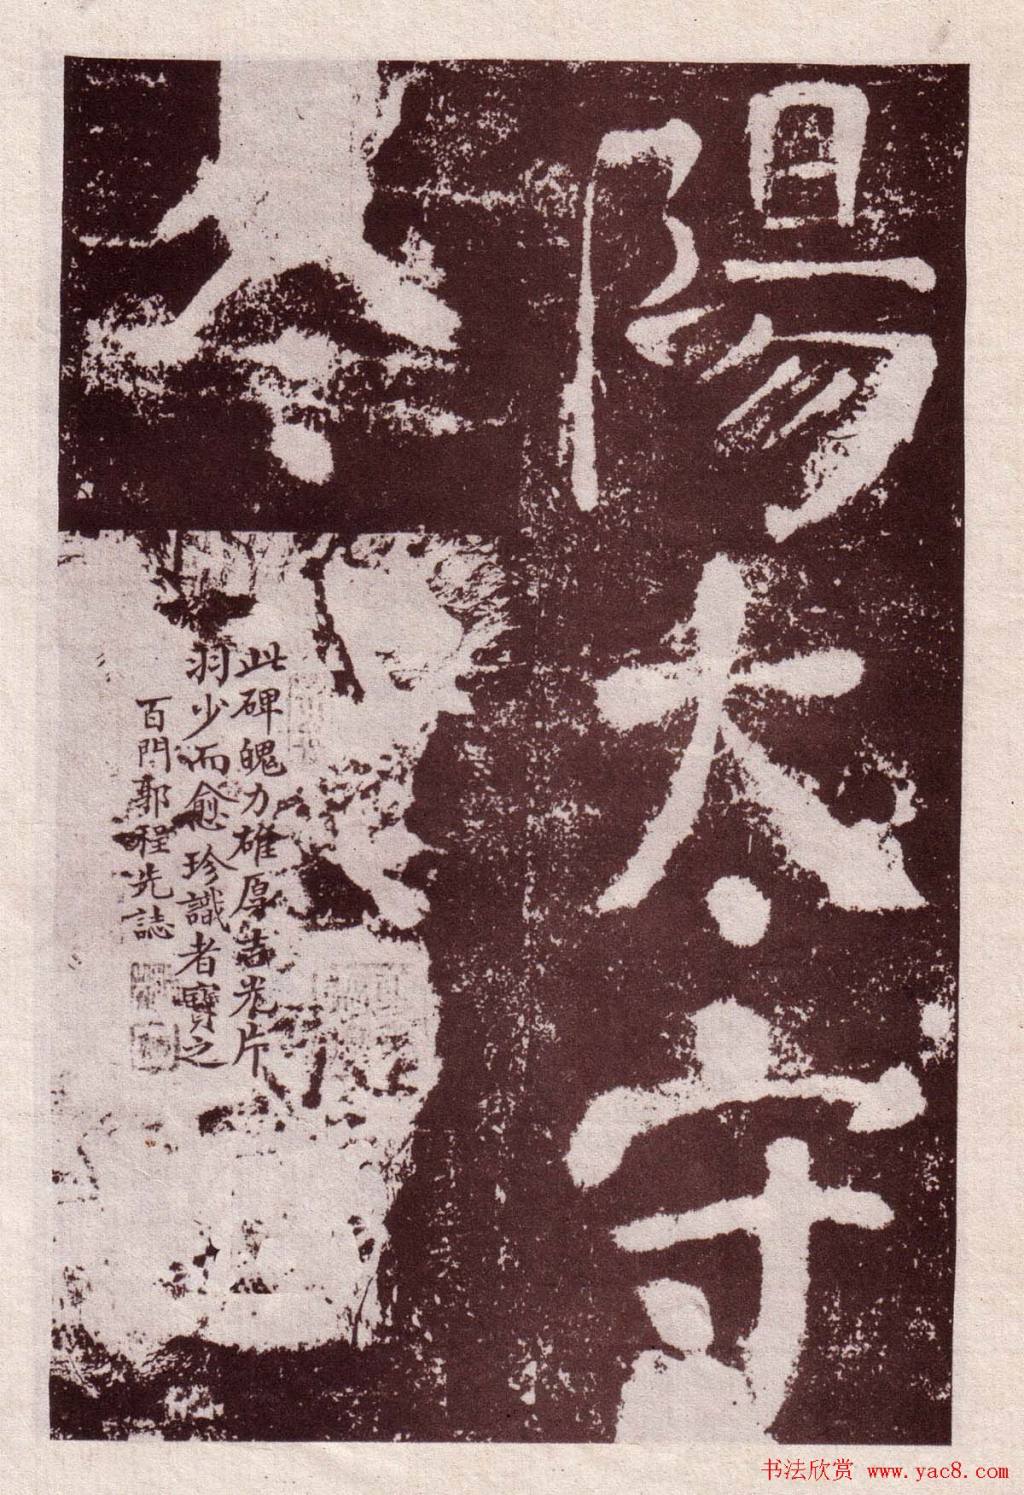 陽太守
此碑魄力雄厚吉光片
羽少而愈珍識者寶之
百門郭程先誌
书法欣赏 www.yac8.com